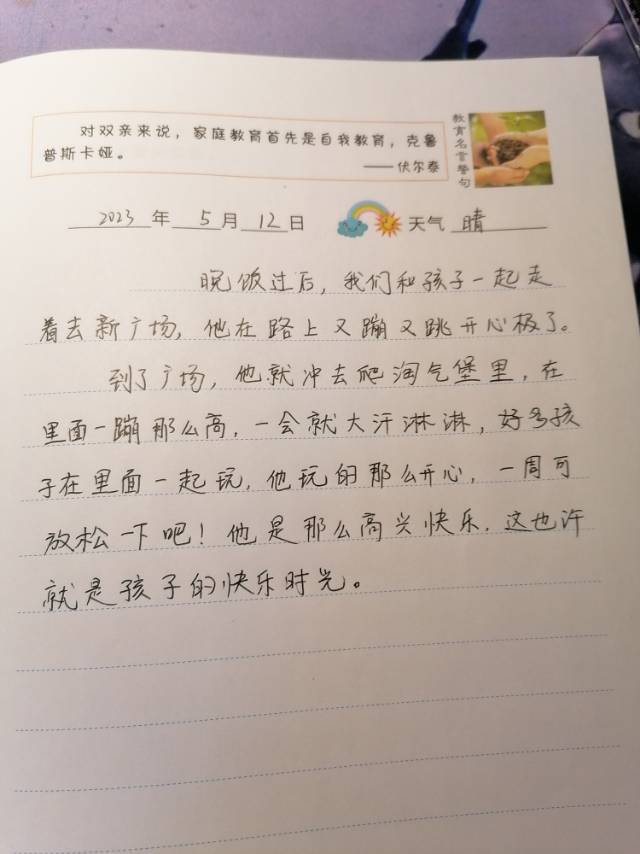 对双亲来说，家庭教育首先是自我教育，克鲁
普斯卡娅。
——伏尔泰
教育名言警句
2023年5月12日 天气 晴
晚饭过后，我们和孩子一起走
着去新广场，他在路上又蹦又跳开心极了。
到了广场，他就冲去爬淘气堡里，在
里面一蹦那么高，一会就大汗淋淋，好多孩
子在里面一起玩，他玩的那么开心，一周可
放松一下吧！他是那么高兴快乐．这也许
就是孩子的快乐时光。